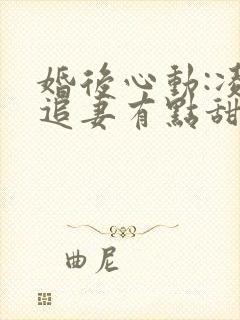 婚後心動:凌
追妻有點甜
曲尼